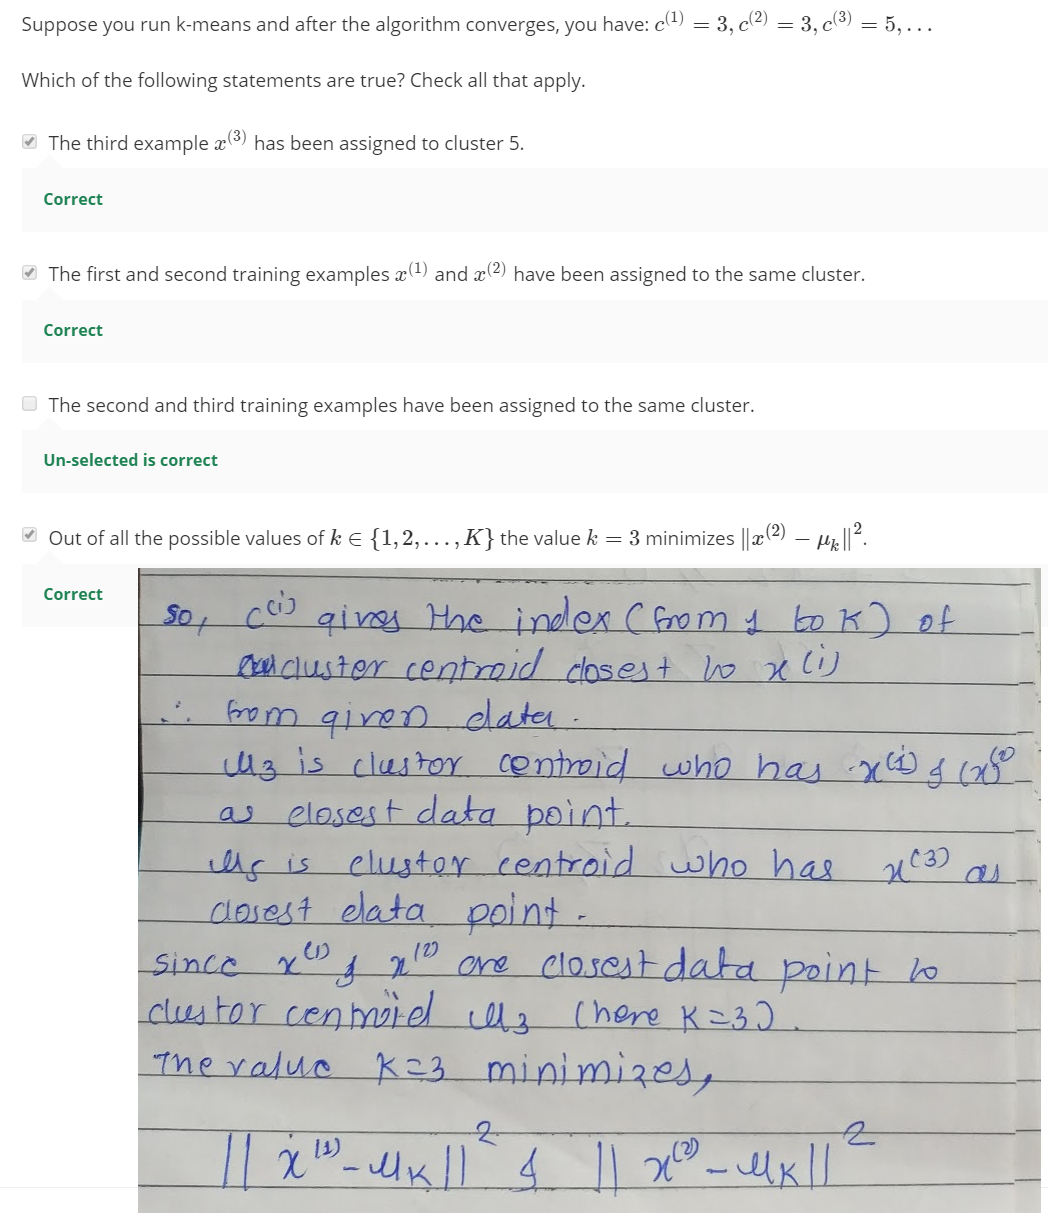 Suppose you run k-means and after the algorithm converges, you have: c^(1) = 3, c^(2) = 3, c^(3) = 5, ...
Which of the following statements are true? Check all that apply.
The third example x^(3) has been assigned to cluster 5.
Correct
The first and second training examples x^(1) and x^(2) have been assigned to the same cluster.
Correct
The second and third training examples have been assigned to the same cluster.
Un-selected is correct
Out of all the possible values of k ∈ {1, 2, ..., K} the value k = 3 minimizes ||x^(2) − μ_k||^2.
Correct
so, c^(i) gives the index (from 1 to K) of
cluster centroid closest to x^(i)
∴ from given data.
μ_3 is clustor centroid who has x^(1) & (x)^(2)
as closest data point.
μ_5 is clustor centroid who has x^(3) as
closest data point.
since x^(1) & x^(2) are closest data point to
clustor centroid μ_3 (here K=3).
The value K=3 minimizes,
||x^(1) - μ_K||^2 & ||x^(2) - μ_K||^2